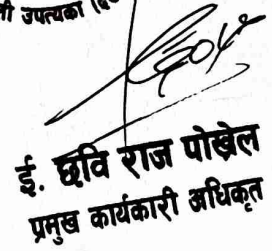 उपत्यका
ई. छवि राज पोख्रेल
प्रमुख कार्यकारी अधिकृत